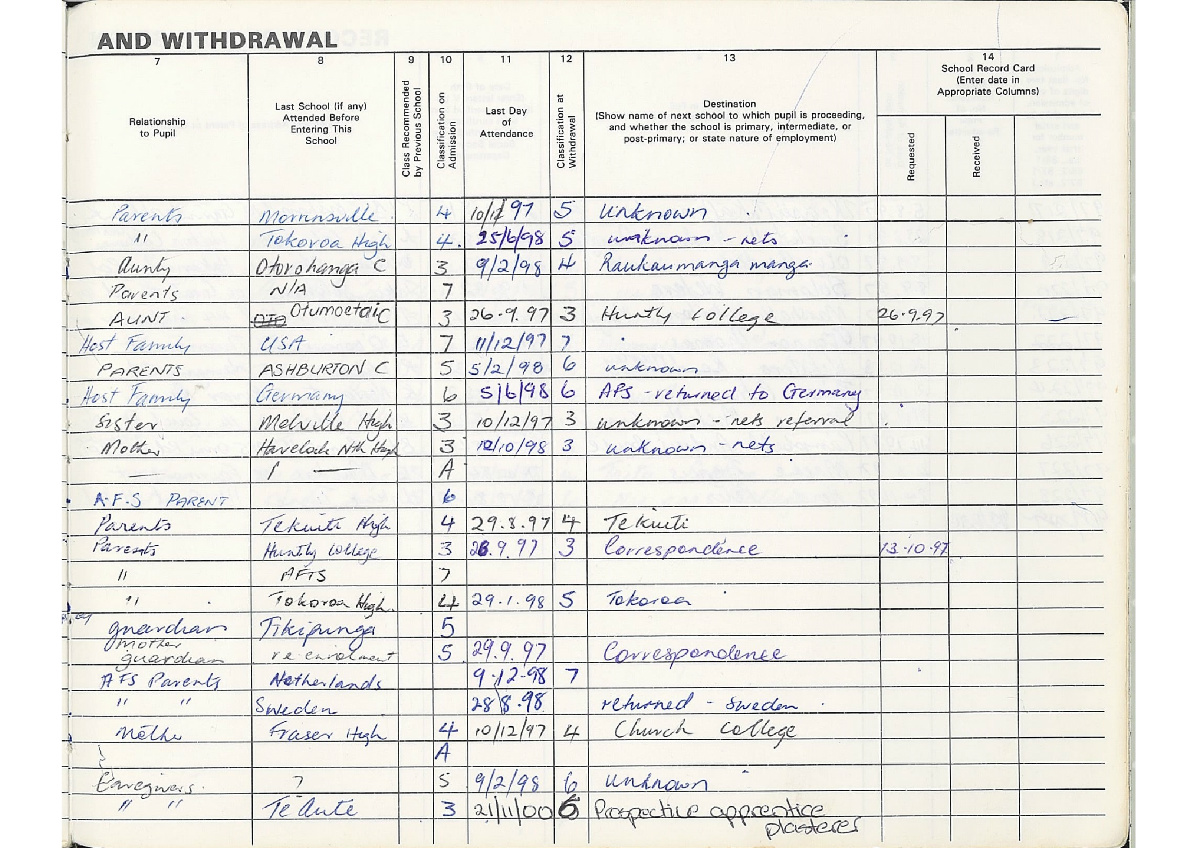 AND WITHDRAWAL
7 8 9 10 11 12 13 14
Relationship to Pupil
Last School (if any) Attended Before Entering This School
Class Recommended by Previous School
Classification on Admission
Last Day of Attendance
Classification at Withdrawal
Destination
(Show name of next school to which pupil is proceeding, and whether the school is primary, intermediate, or post-primary; or state nature of employment)
School Record Card
(Enter date in Appropriate Columns)
Requested
Received
Parents Morrinsville 4 97 5 unknown
" Tokoroa High 4. 25/6/98 5 unknown - nets
Aunty Otorohanga C 3 9/2/98 4 Raukaumanga manga
Parents N/A 7
AUNT Otumoetai C 3 26.9.97 3 Huntly College 26.9.97
Host Family USA 7 11/12/97 7
PARENTS ASHBURTON C 5 5/2/98 6 unknown
Host Family Germany 6 5/6/98 6 AFS - returned to Germany
Sister Melville High 3 10/12/97 3 unknown - nets referral
Mother Havelock Nth High 3 12/10/98 3 unknown - nets
— — A
A.F.S PARENT 6
Parents Te Kuiti High 4 29.8.97 4 Te Kuiti
Parents Huntly College 3 26.9.97 3 Correspondence 13.10.97
" AFTS 7
" Tokoroa High. 4 29.1.98 5 Tokoroa
guardian Tikipunga 5
mother
guardian re-enrolment 5 29.9.97 Correspondence
AFS Parents Netherlands 9.12-98 7
" " Sweden 28.8.98 returned - Sweden
Mother Fraser High 4 10/12/97 4 Church College
A
Caregivers ? 5 9/2/98 6 unknown
" " Te Aute 3 21/11/00 6 Prospective apprentice
plasterer